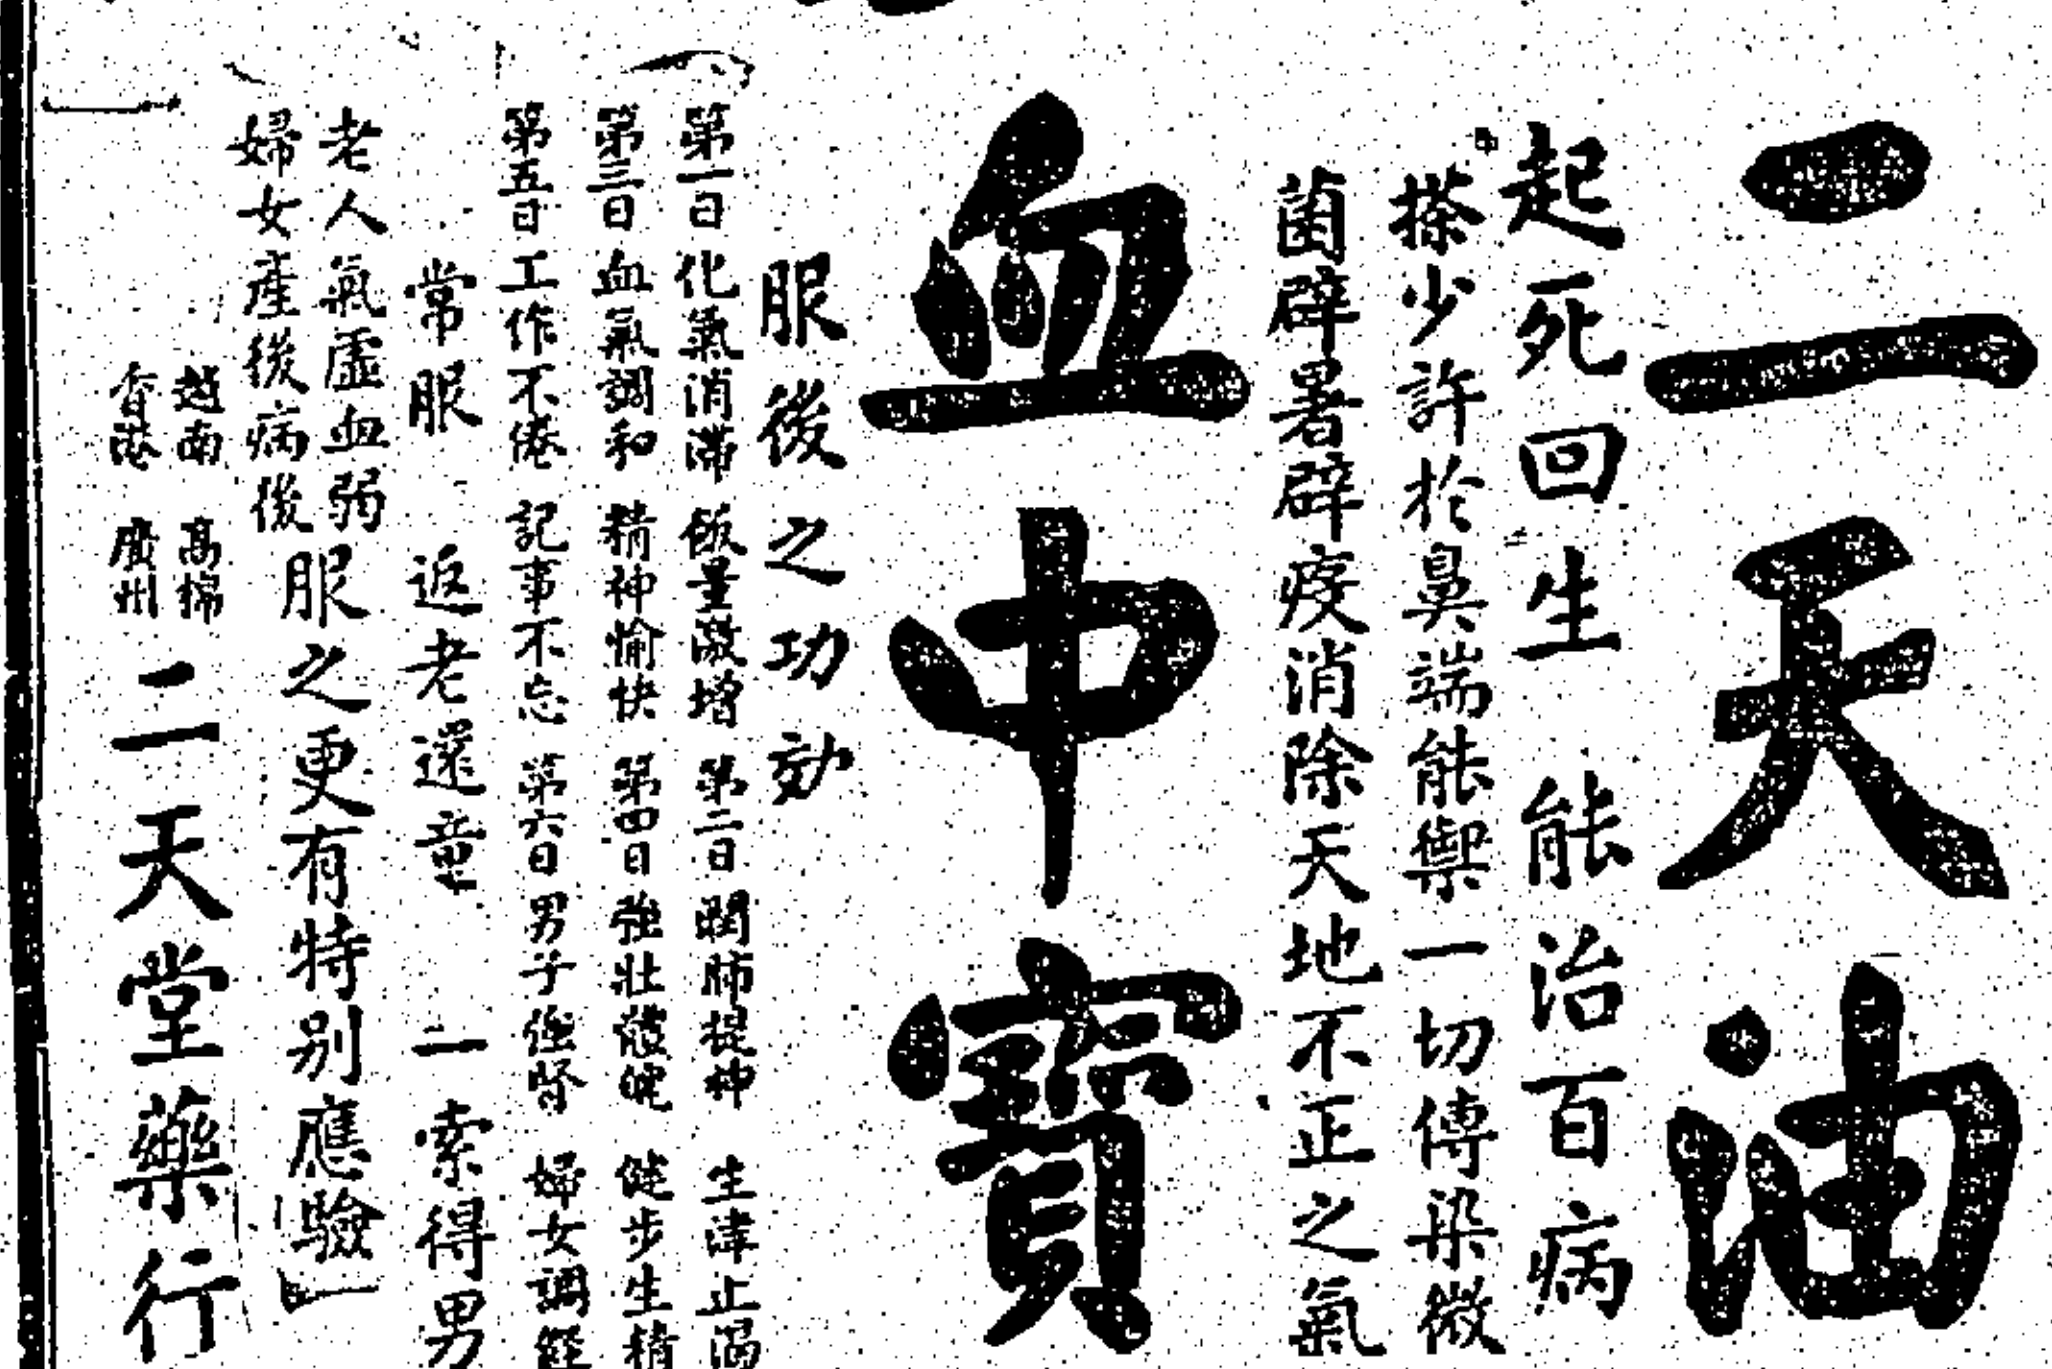 二天油
起死回生 能治百病
搽少許於鼻端能禦一切傳染微
菌辟暑辟疫消除天地不正之氣
血中寶
服後之功効
第一日化氣消滯 飯量激增 第二日潤肺提神 生津止渴
第三日血氣調和 精神愉快 第四日強壯體魄 健步生精
第五日工作不倦 記事不忘 第六日男子強腎 婦女調經
常服 返老還童 一索得男
老人氣虛血弱
婦女產後病後
服之更有特別應驗
越南 高棉
香港 廣州
二天堂藥行